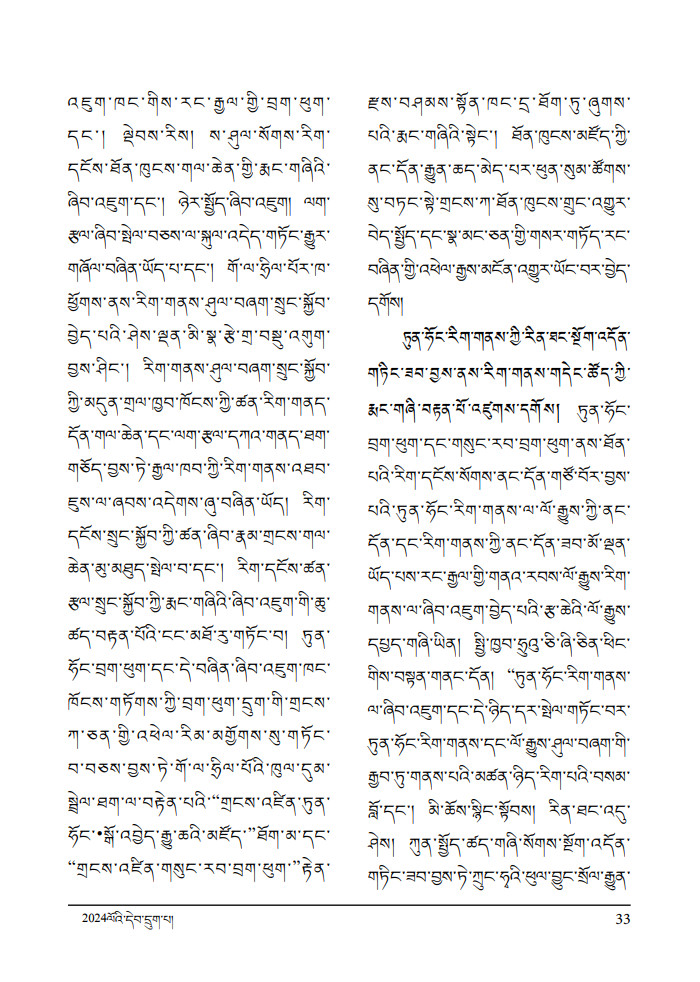 འཇུག་ཁང་གིས་རང་རྒྱལ་གྱི་བྲག་ཕུག་
དང་། ལྡེབས་རིས། ས་ཤུལ་སོགས་རིག་
དངོས་ཐོན་ཁུངས་གལ་ཆེན་གྱི་རྨང་གཞིའི་
ཞིབ་འཇུག་དང་། ཉེར་སྤྱོད་ཞིབ་འཇུག ལག་
རྩལ་ཞིབ་སྤེལ་བཅས་ལ་སྐུལ་འདེད་གཏོང་རྒྱུར་
གཞོལ་བཞིན་ཡོད་པ་དང་། གོ་ལ་ཧྲིལ་པོར་ཁ་
ཕྱོགས་ནས་རིག་གནས་ཤུལ་བཞག་སྲུང་སྐྱོབ་
བྱེད་པའི་ཤེས་ལྡན་མི་སྣ་རྩེ་གྲ་བསྡུ་འགུག་
བྱས་ཤིང་། རིག་གནས་ཤུལ་བཞག་སྲུང་སྐྱོབ་
ཀྱི་མདུན་གྲལ་ཁྱབ་ཁོངས་ཀྱི་ཚན་རིག་གནད་
དོན་གལ་ཆེན་དང་ལག་རྩལ་དཀའ་གནད་ཐག་
གཅོད་བྱས་ཏེ་རྒྱལ་ཁབ་ཀྱི་རིག་གནས་འཐབ་
ཇུས་ལ་ཞབས་འདེགས་ཞུ་བཞིན་ཡོད། རིག་
དངོས་སྲུང་སྐྱོབ་ཀྱི་ཚན་ཞིབ་རྣམ་གྲངས་གལ་
ཆེན་མུ་མཐུད་སྤེལ་བ་དང་། རིག་དངོས་ཚན་
རྩལ་སྲུང་སྐྱོབ་ཀྱི་རྨང་གཞིའི་ཞིབ་འཇུག་གི་ཆུ་
ཚད་བརྟན་པོའི་ངང་མཐོ་རུ་གཏོང་བ། ཏུན་
ཧོང་བྲག་ཕུག་དང་དེ་བཞིན་ཞིབ་འཇུག་ཁང་
ཁོངས་གཏོགས་ཀྱི་བྲག་ཕུག་དྲུག་གི་གྲངས་
ཀ་ཅན་གྱི་འཕེལ་རིམ་མགྱོགས་སུ་གཏོང་
བ་བཅས་བྱས་ཏེ་གོ་ལ་ཧྲིལ་པོའི་ཁུལ་དུམ་
སྦྲེལ་ཐག་ལ་བརྟེན་པའི་“གྲངས་འཛིན་ཏུན་
ཧོང་•སྒོ་འབྱེད་རྒྱུ་ཆའི་མཛོད་”ཐོག་མ་དང་
“གྲངས་འཛིན་གསུང་རབ་བྲག་ཕུག་”རྟེན་
རྫས་བཤམས་སྟོན་ཁང་དྲ་ཐོག་ཏུ་ཞུགས་
པའི་རྨང་གཞིའི་སྟེང་། ཐོན་ཁུངས་མཛོད་ཀྱི་
ནང་དོན་རྒྱུན་ཆད་མེད་པར་ཕུན་སུམ་ཚོགས་
སུ་བཏང་སྟེ་གྲངས་ཀ་ཐོན་ཁུངས་གྲུང་འགྱུར་
བེད་སྤྱོད་དང་སྣ་མང་ཅན་གྱི་གསར་གཏོད་རང་
བཞིན་གྱི་འཕེལ་རྒྱས་མངོན་འགྱུར་ཡོང་བར་བྱེད་
དགོས།
ཏུན་ཧོང་རིག་གནས་ཀྱི་རིན་ཐང་སྔོག་འདོན་
གཏིང་ཟབ་བྱས་ནས་རིག་གནས་གདེང་ཚོད་ཀྱི་
རྨང་གཞི་བརྟན་པོ་འཛུགས་དགོས། ཏུན་ཧོང་
བྲག་ཕུག་དང་གསུང་རབ་བྲག་ཕུག་ནས་ཐོན་
པའི་རིག་དངོས་སོགས་ནང་དོན་གཙོ་བོར་བྱས་
པའི་ཏུན་ཧོང་རིག་གནས་ལ་ལོ་རྒྱུས་ཀྱི་ནང་
དོན་དང་རིག་གནས་ཀྱི་ནང་དོན་ཟབ་མོ་ལྡན་
ཡོད་པས་རང་རྒྱལ་གྱི་གནའ་རབས་ལོ་རྒྱུས་རིག་
གནས་ལ་ཞིབ་འཇུག་བྱེད་པའི་རྩ་ཆེའི་ལོ་རྒྱུས་
དཔྱད་གཞི་ཡིན། སྤྱི་ཁྱབ་ཧྲུའུ་ཅི་ཞི་ཅིན་ཕིང་
གིས་བསྟན་གནང་དོན། “ཏུན་ཧོང་རིག་གནས་
ལ་ཞིབ་འཇུག་དང་དེ་ཉིད་དར་སྤེལ་གཏོང་བར་
ཏུན་ཧོང་རིག་གནས་དང་ལོ་རྒྱུས་ཤུལ་བཞག་གི་
རྒྱབ་ཏུ་གནས་པའི་མཚན་ཉིད་རིག་པའི་བསམ་
བློ་དང་། མི་ཆོས་སྙིང་སྟོབས། རིན་ཐང་འདུ་
ཤེས། ཀུན་སྤྱོད་ཚད་གཞི་སོགས་སྔོག་འདོན་
གཏིང་ཟབ་བྱས་ཏེ་ཀྲུང་ཧྭའི་ཕུལ་བྱུང་སྲོལ་རྒྱུན་
2024ལོའི་དེབ་དྲུག་པ།
33